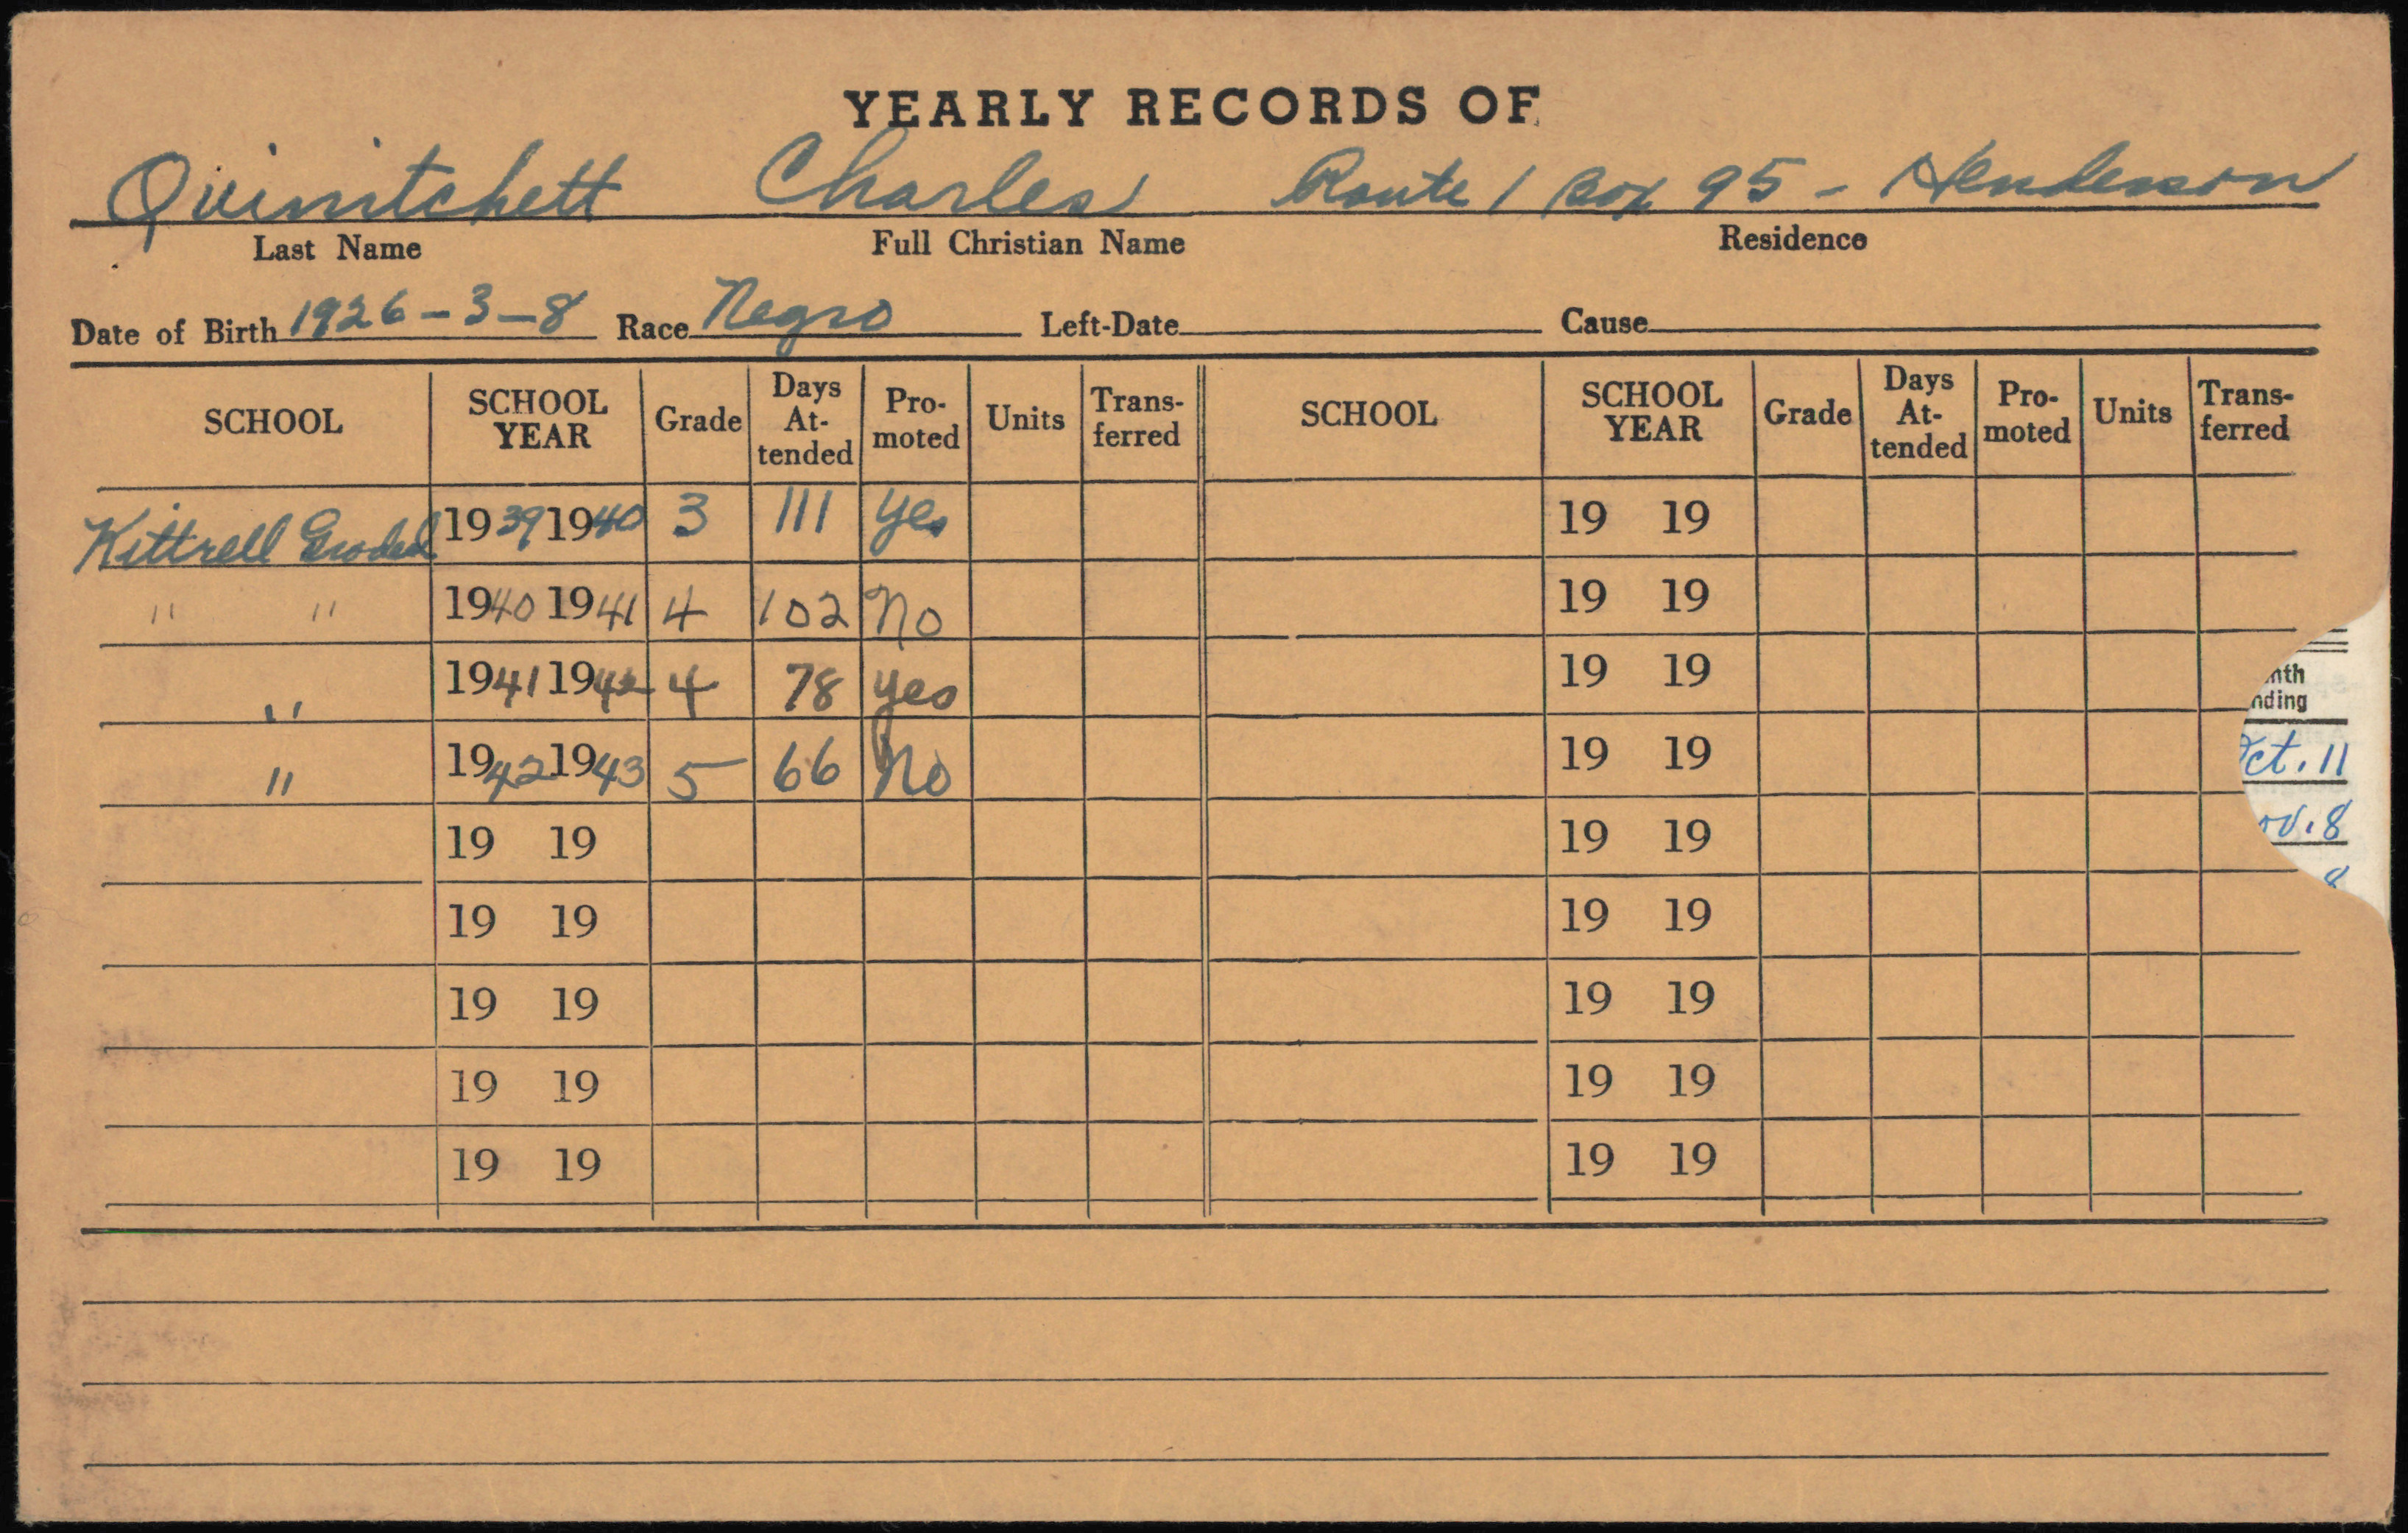 YEARLY RECORDS OF
Quinitchett Charles Route 1 Box 95 - Henderson
Last Name Full Christian Name Residence
Date of Birth 1926-3-8 Race Negro Left-Date Cause
SCHOOL SCHOOL YEAR Grade Days At-tended Pro-moted Units Trans-ferred SCHOOL SCHOOL YEAR Grade Days At-tended Pro-moted Units Trans-ferred
Kittrell Graded 1939 1940 3 111 yes 19 19
" " 1940 1941 4 102 No 19 19
" 1941 1942 4 78 yes 19 19
" 1942 1943 5 66 No 19 19
19 19 19 19
19 19 19 19
19 19 19 19
19 19 19 19
19 19 19 19
nth
nding
Oct. 11
ov. 8
8